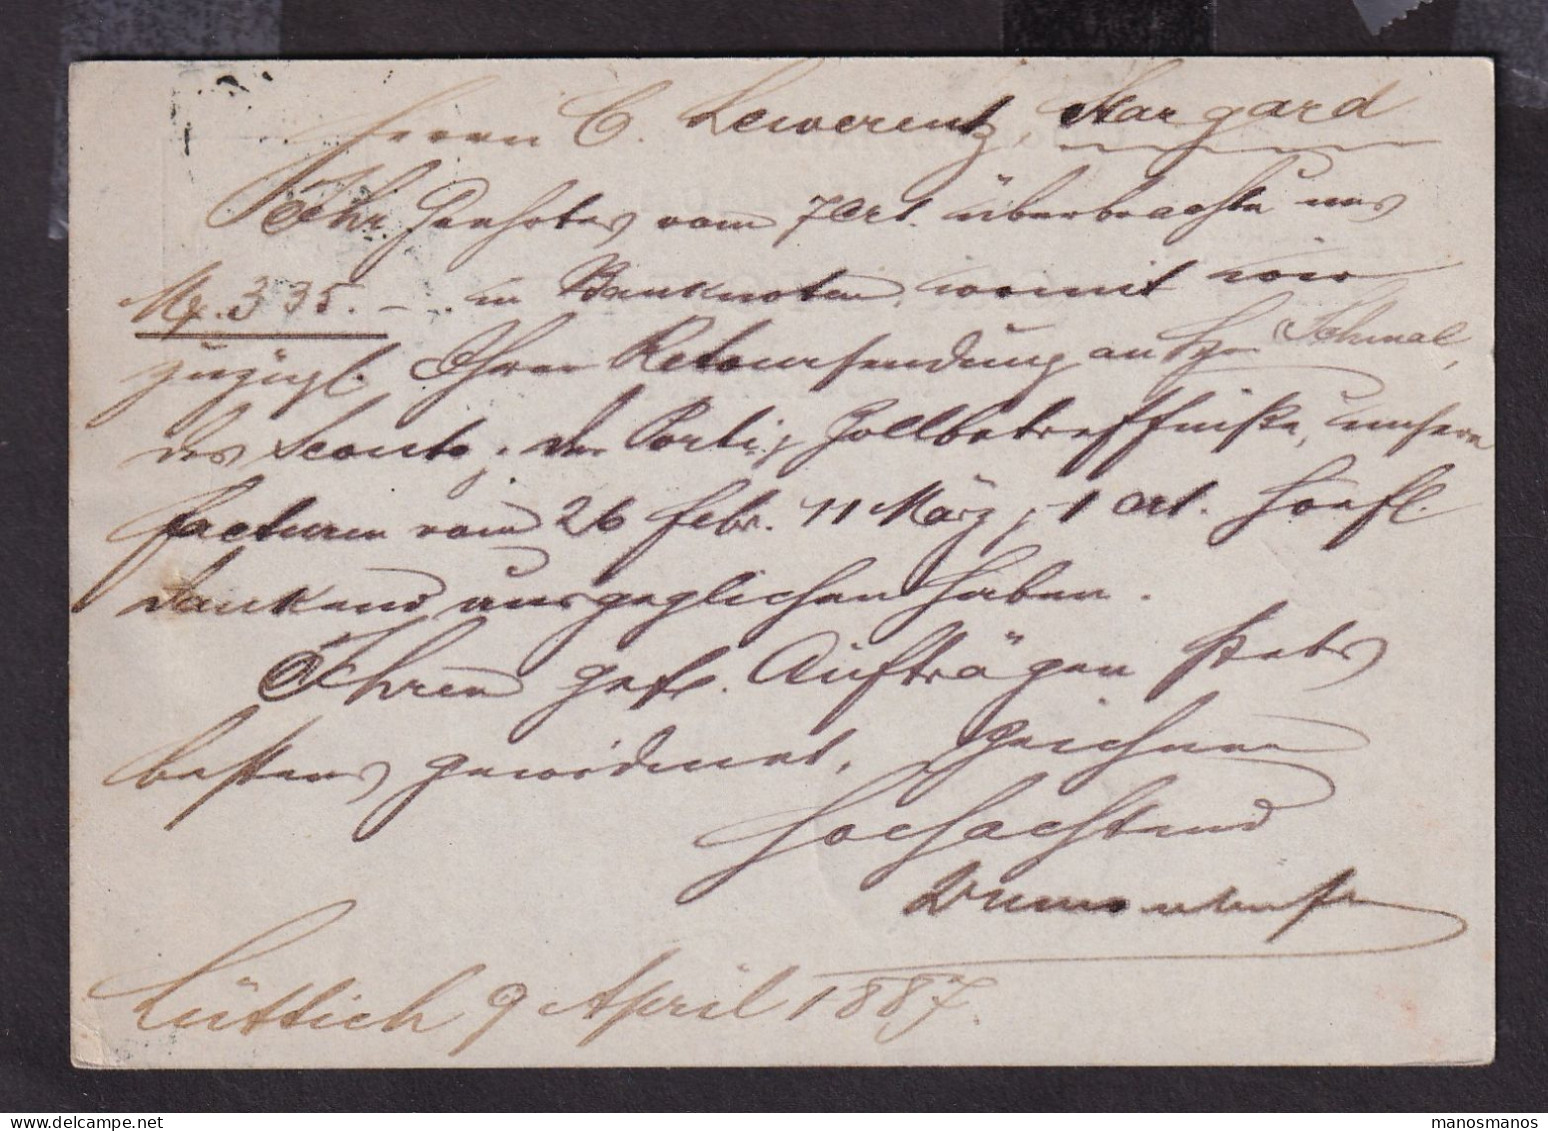 Herrn C. Lewerentz, Stargard
Ihr Geehrtes vom 7 Crt. überbrachte uns
Mk. 335. – in Banknoten, womit wir
zuzügl. Ihrer Retoursendung an Schmal,
des Sconto, der Porti, Zollbetreffniße, unsere
Facturen vom 26 Febr. 11 März, 1 crt. höfl.
dankend ausgeglichen haben.
Ihren gefl. Aufträgen stets
bestens gewidmet, zeichnen
Hochachtend
Lüttich 9 April 1887.
manosmanos